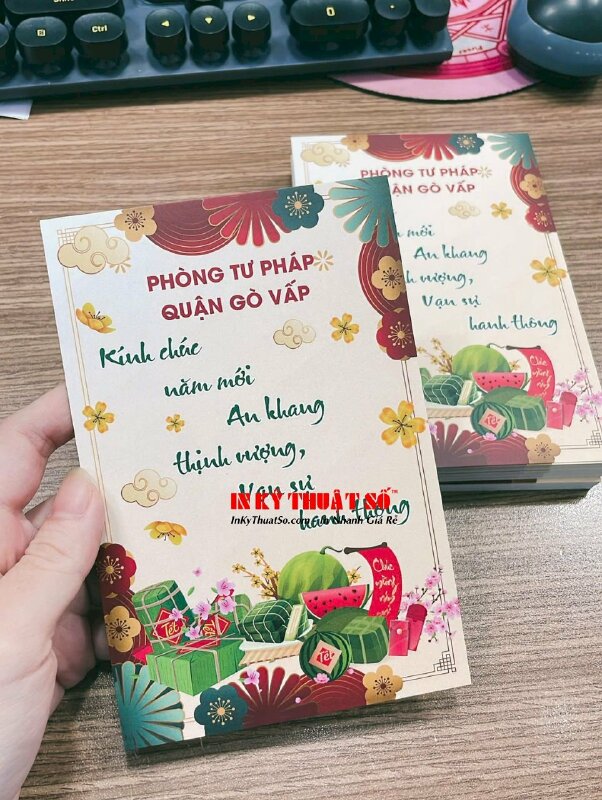 Ctrl
PHÒNG TƯ PHÁP
QUẬN GÒ VẤP
Kính chúc
năm mới
An khang
thịnh vượng,
Vạn sự
hanh thông
IN KỸ THUẬT SỐ™
InKyThuatSo.com
Nhanh Giá Rẻ
Tết
Tết
Chúc
mừng
năm
PHÒNG TƯ PHÁP
QUẬN GÒ VẤP
mới
An khang
vượng,
Vạn sự
hanh thông
Chúc
mừng
Tết